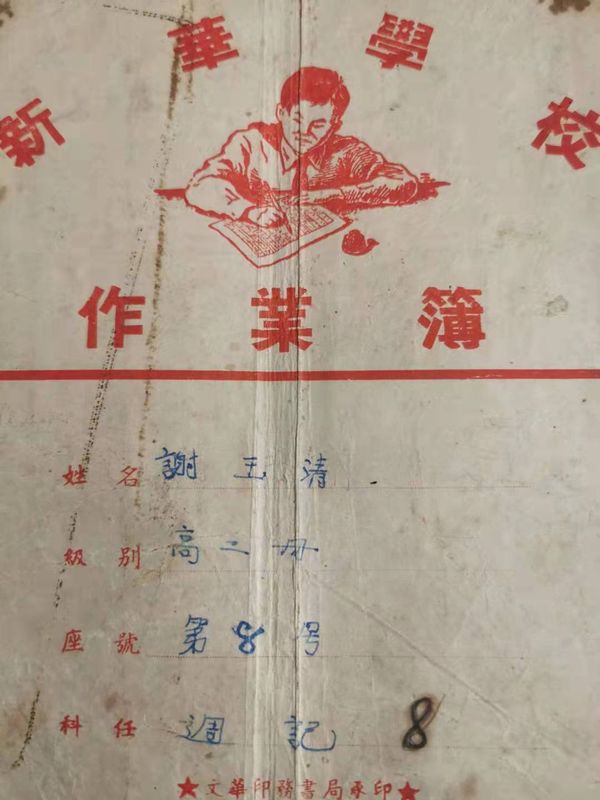 新華學校
作業簿
姓名 謝玉清
級別 高二册
座號 第8号
科任 週記 8
★文華印務書局承印★